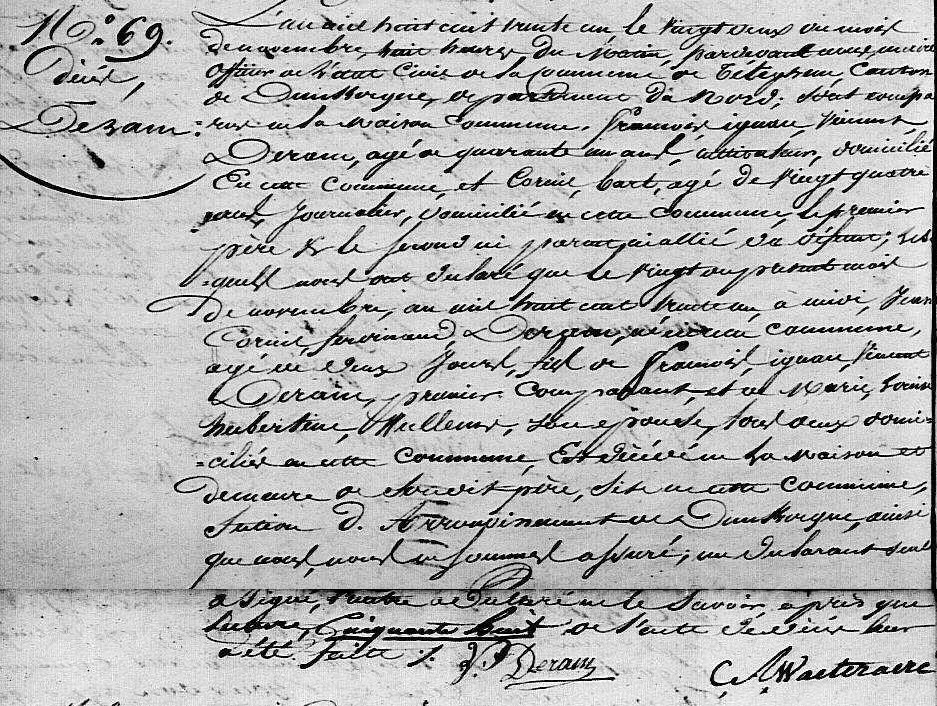 N.º 69.
décès,
Deram
L'an mil huit cent trente un, le vingt deux du mois
de novembre, huit heures du matin, pardevant nous, maire
officier de l'état civil de la commune de Téteghem, canton
de Dunkerque, département du Nord; sont compa-
rus en la maison commune, François, ignace, Vincent
Deram, agé de quarante un ans, cultivateur, domicilié
En cette commune, et Cornil, bart, agé de vingt quatre
ans, Journalier, domicilié en cette commune, le premier
père & le second ni parent, ni allié du défunt; les-
quels nous ont déclaré que le vingt du présent mois
De novembre, an mil huit cent trente un, a midi, Jean
Cornil ferdinand, Deram, né en cette commune,
agé de deux Jours, fils de François, ignace, Vincent
Deram, premier comparant, et de Marie, Louise
hubertine, Mellenne, son epouse, tous deux domi-
ciliés en cette commune, Est décédé en la Maison et
demeure de son dit père, sise en cette commune,
section d. Arrondissement de Dunkerque, ainsi
que nous, nous en sommes assuré; un declarant seul
a signé, l'autre a déclaré ne le savoir, après que
lecture, Cinquante huit de l'acte de décès leur
a été faite /.
Deram